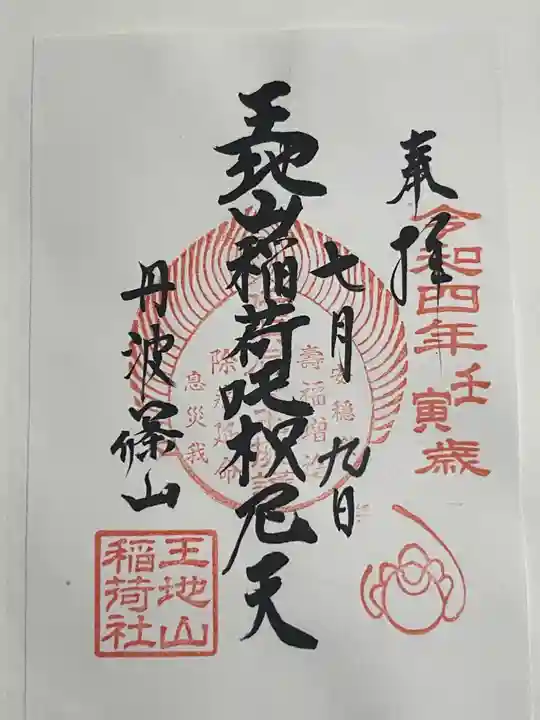 奉拝
令和四年壬寅歳
七月九日
王地山稲荷吒枳尼天
壽福増
安穏
除
命
息災我
丹波篠山
王地山
稲荷社